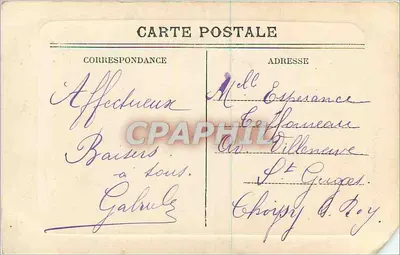 CARTE POSTALE
CORRESPONDANCE
Affectueux
Baisers
à tous.
Gabriele
ADRESSE
Mlle Esperance
Av. Villeneuve
St Georges
Choisy s. Roy.
CPARAMA